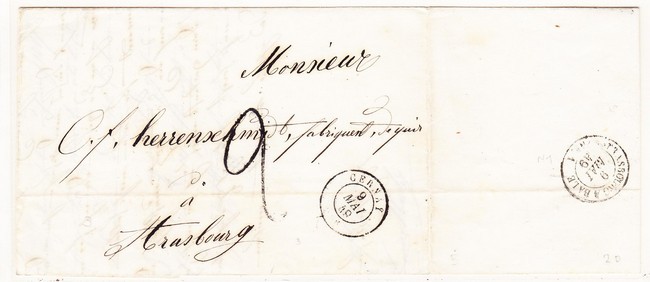 Monsieur
C. f. herrenschmidt, fabriquent, de quir
2
à
Strasbourg
CERNAY
9
MAI
49
STRASBOURG A BALE
9
MAI
49
20